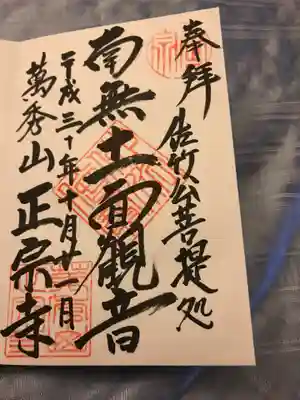 奉拝
佐竹公菩提処
南無十一面観音
平成三十年十月廿一日
萬秀山正宗寺